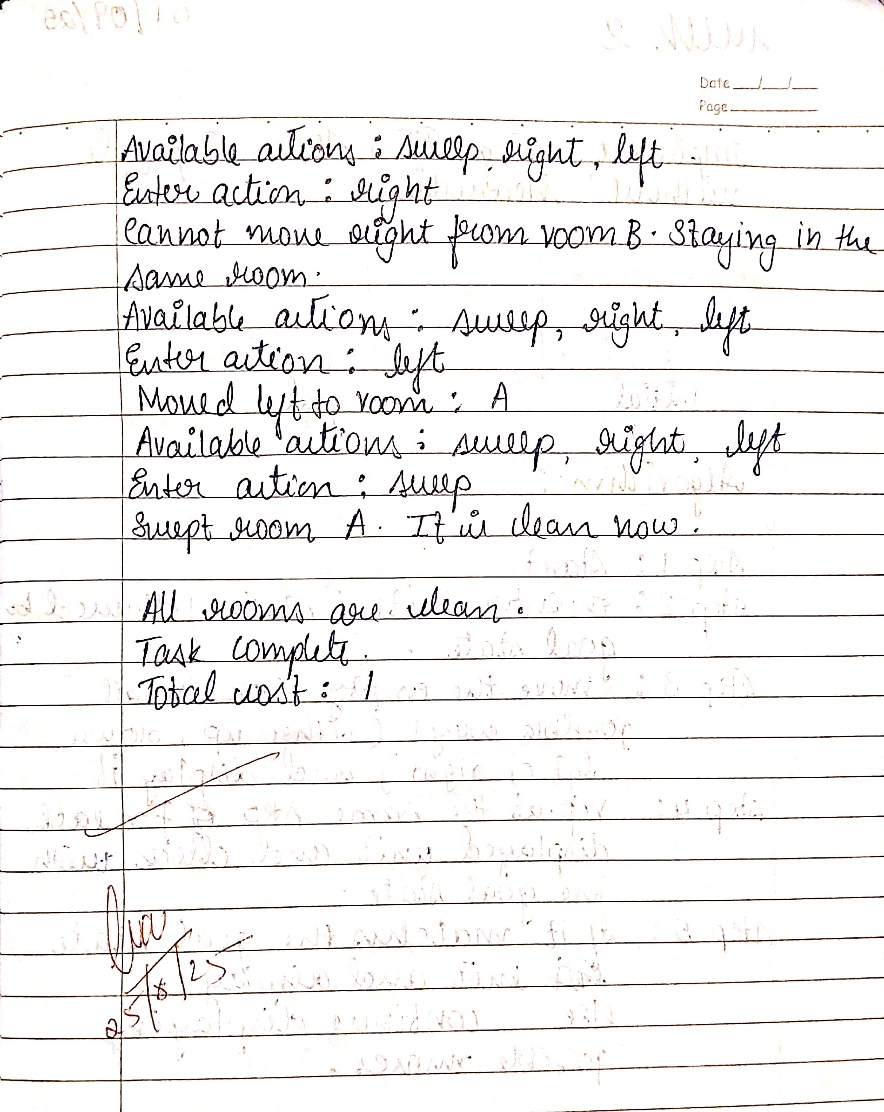 Date
Page
Available actions : sweep, right, left.
Enter action : right
Cannot move right from room B. Staying in the
same room.
Available actions : sweep, right, left
Enter action : left
Moved left to room : A
Available actions : sweep, right, left
Enter action : sweep
Swept room A. It is clean now.
All rooms are clean.
Task complete.
Total cost : 1
25/8/25